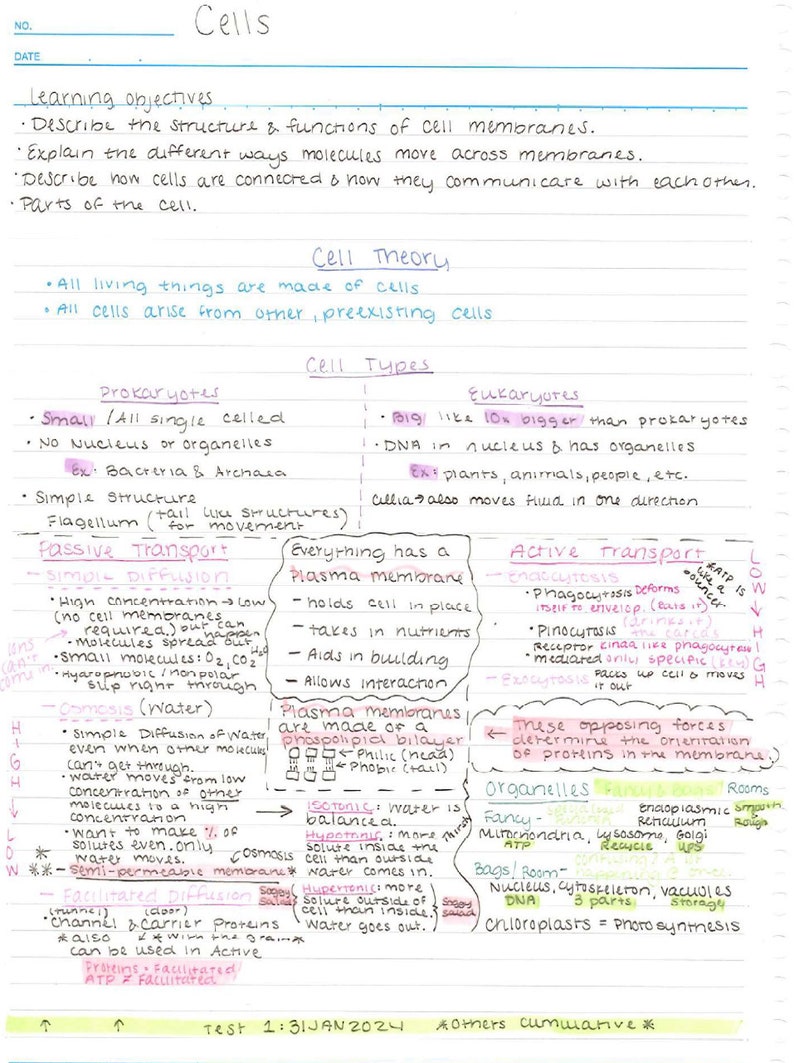 NO.
Cells
DATE
Learning objectives
• Describe the structure & functions of cell membranes.
• Explain the different ways molecules move across membranes.
• Describe how cells are connected & how they communicate with each other.
• Parts of the cell.
Cell Theory
• All living things are made of cells
• All cells arise from other, preexisting cells
Cell Types
Prokaryotes
• Small / All single celled
• No Nucleus or organelles
Ex: Bacteria & Archaea
• Simple Structure
Flagellum (tail like structures)
for movement
Eukaryotes
• Big like 10x bigger than prokaryotes
• DNA in nucleus & has organelles
Ex: plants, animals, people, etc.
Cillia → also moves fluid in one direction
Passive Transport
- Simple Diffusion
• High concentration → Low
(no cell membranes
required.) but can happen
• Molecules spread out
• Small molecules: O2, CO2 H2O
• Hydrophobic / nonpolar
slip right through
Ions can't come in.
- Osmosis (Water)
• Simple Diffusion of Water
even when other molecules
can't get through.
• Water moves from low
concentration of other
molecules to a high
concentration
• Want to make % of
solutes even. only
water moves.
Osmosis
** - Semi-permeable membrane*
HIGH → LOW
- Facilitated Diffusion
(tunnel) (door)
• Channel & Carrier Proteins
*also * with the grain*
can be used in Active
Proteins = Facilitated
ATP ≠ Facilitated
Everything has a
Plasma membrane
- holds cell in place
- takes in nutrients
- Aids in building
- Allows interaction
Plasma membranes
are made of a
phospolipid bilayer
← Philic (head)
← Phobic (tail)
→ Isotonic: Water is
balanced.
Hypotonic: more
solute inside the
cell than outside
Water comes in.
Thirsty
Soggy salad
Hypertonic: more
solute outside of
cell than inside.
Water goes out.
Soggy salad
Active Transport
*ATP is like a bouncer
- Endocytosis
• Phagocytosis Deforms
itself to envelop. (eats it)
• Pinocytosis (drinks it)
Receptor kinda like phagocytosis
• mediated only specific (key)
- Exocytosis Packs up cell & moves
it out
LOW → HIGH
← These opposing forces
determine the orientation
of proteins in the membrane.
Organelles Fancy & Bags Rooms
Fancy - Endoplasmic Smooth
Reticulum Rough
Mitochondria, Lysosome, Golgi
ATP Recycle UPS
Bags/Room-
Nucleus, Cytoskeleton, vacuoles
DNA 3 parts Storage
Chloroplasts = Photosynthesis
↑ ↑ Test 1: 31JAN2024 *Others cumulative*